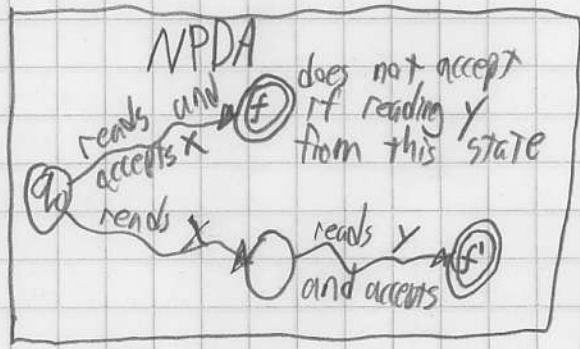 NPDA
reads and
accepts X
f
does not accept
if reading y
from this state
q0
reads X
reads y
and accepts
f'